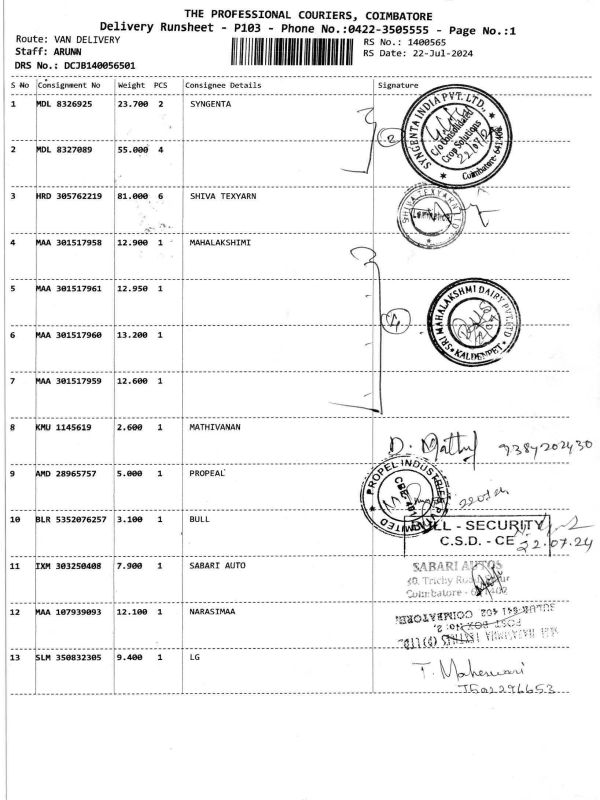 THE PROFESSIONAL COURIERS, COIMBATORE
Delivery Runsheet - P103 - Phone No.:0422-3505555 - Page No.:1
Route: VAN DELIVERY
RS No.: 1400565
Staff: ARUNN
RS Date: 22-Jul-2024
DRS No.: DCJB140056501
S No Consignment No Weight PCS Consignee Details Signature
1 MDL 8326925 23.700 2 SYNGENTA
SYNGENTA INDIA PVT. LTD.,
C/o Consolidated
Crop Solutions
22/07/24
Coimbatore-641406
2
2 MDL 8327089 55.000 4
3 HRD 305762219 81.000 6 SHIVA TEXYARN
SHIVA TEXYARN LTD
Coimbatore
4 MAA 301517958 12.900 1 MAHALAKSHIMI
5 MAA 301517961 12.950 1
SRI MAHALAKSHMI DAIRY PVT.LTD
KALDENPET
4
6 MAA 301517960 13.200 1
7 MAA 301517959 12.600 1
8 KMU 1145619 2.600 1 MATHIVANAN
D. Mathy 9384202430
9 AMD 28965757 5.000 1 PROPEAL
PROPEL INDUSTRIES P
LIMITED
CBE-401
10 BLR 5352076257 3.100 1 BULL
BULL - SECURITY
C.S.D. - CE
22.07.24
11 IXM 303250408 7.900 1 SABARI AUTO
SABARI AUTOS
30, Trichy Road,
Coimbatore - 402
12 MAA 107939093 12.100 1 NARASIMAA
POST BOX No: 2,
SULUR-641 402 COIMBATORE.
13 SLM 350832305 9.400 1 LG
T. Maheswari
7502296653